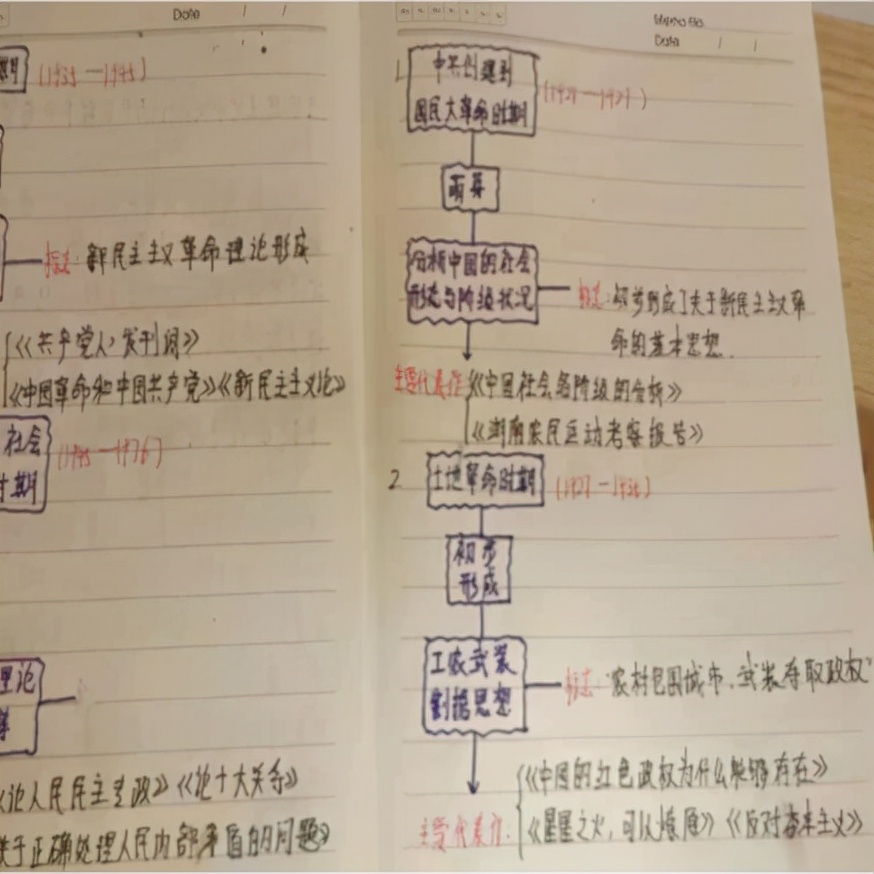 Date / /
期 (1935—1945)
标志: 新民主主义革命理论形成
《《共产党人》发刊词》
《中国革命和中国共产党》《新民主主义论》
社会
时期
(1945—1976)
理论
《论人民民主专政》《论十大关系》
关于正确处理人民内部矛盾的问题》
Date / /
1
中共创建到
国民大革命时期
(1921—1927)
萌芽
分析中国的社会
形态与阶级状况
标志: 初步形成了关于新民主主义革
命的基本思想.
主要代表作《中国社会各阶级的分析》
《湖南农民运动考察报告》
2
土地革命时期
(1927—1936)
初步
形成
工农武装
割据思想
标志: "农村包围城市、武装夺取政权"
主要代表作:
《中国的红色政权为什么能够存在》
《星星之火,可以燎原》《反对本本主义》